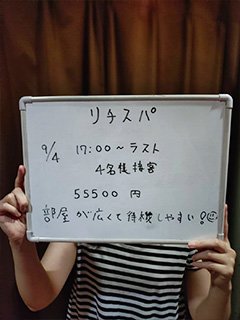 リチスパ
9/4 17:00~ラスト
4名様接客
55500 円
部屋が広くて待機しやすい!